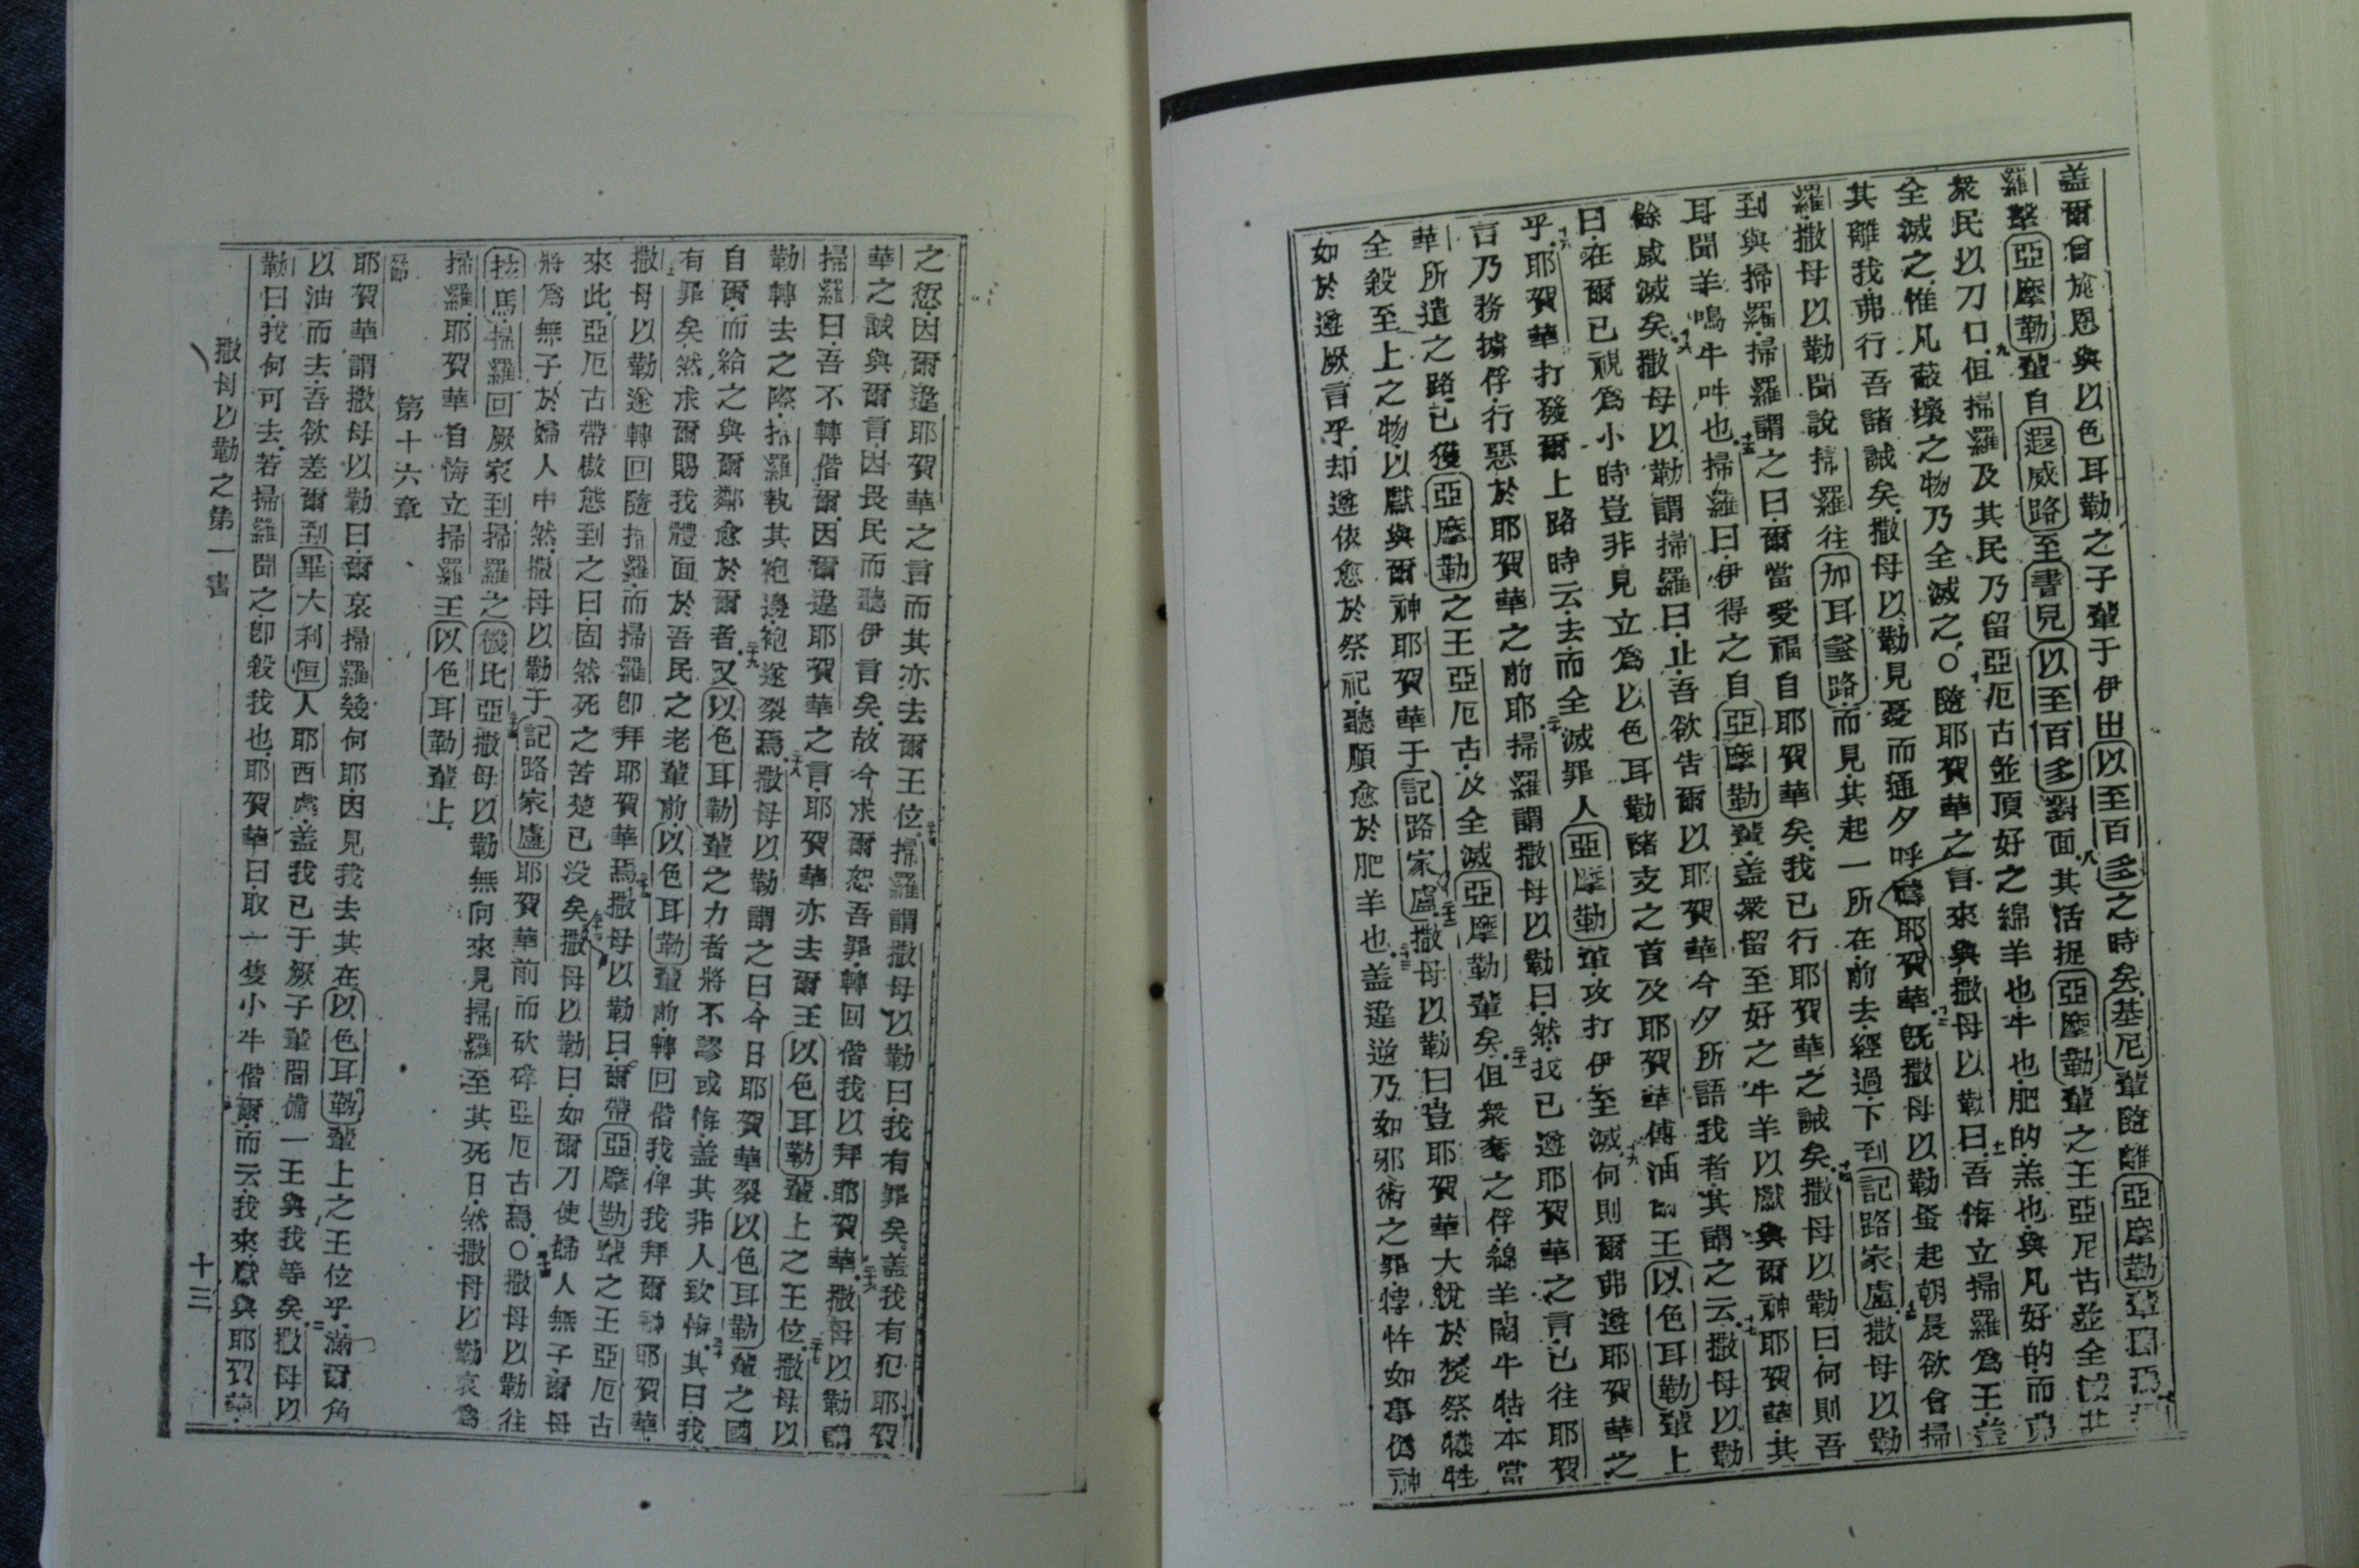 盖爾曾施恩與以色耳勒之子輩于伊出以至百多之時矣基尼輩隨離亞摩勒輩
羅擊亞摩勒輩自遐威路至書見以至百多對面八其活捉亞摩勒輩之王亞厄古並全滅
衆民以刀口九但掃羅及其民乃留亞厄古並頂好之綿羊也牛也肥的羔也與凡好的而弗
全滅之惟凡蔽壞之物乃全滅之○十隨耶賀華之言來與撒母以勒曰十一吾悔立掃羅爲王盖
其離我弗行吾諸誡矣撒母以勒見憂而通夕呼籲耶賀華十二既撒母以勒蚤起朝晨欲會掃
羅撒母以勒聞說掃羅往加耳𡔷路而見其起一所在前去經過下到記路家盧十三撒母以勒
到與掃羅掃羅謂之曰爾當受福自耶賀華矣我已行耶賀華之誡矣十四撒母以勒曰何則吾
耳聞羊鳴牛吽也十五掃羅曰伊得之自亞摩勒輩盖衆留至好之牛羊以獻與爾神耶賀華其
餘咸滅矣十六撒母以勒謂掃羅曰止吾欲告爾以耶賀華今夕所語我者其謂之云十七撒母以勒
曰在爾已視爲小時豈非見立爲以色耳勒諸支之首及耶賀華傅油爾王以色耳勒輩上
乎十八耶賀華打發爾上路時云去而全滅罪人亞摩勒輩攻打伊至滅十九何則爾弗遵耶賀華之
言乃務擄俘行惡於耶賀華之前耶二十掃羅謂撒母以勒曰然我已遵耶賀華之言已往耶賀
華所遣之路已獲亞摩勒之王亞厄古及全滅亞摩勒輩矣二十一但衆奪之俘綿羊閹牛牯本當
全殺至上之物以獻與爾神耶賀華于記路家盧二十二撒母以勒曰豈耶賀華大悅於焚祭犧牲
如於遵厥言乎却遵依愈於祭祀聽順愈於肥羊也二十三盖違逆乃如邪術之罪悖忤如事僞神
之愆因爾違耶賀華之言而其亦去爾王位二十四掃羅謂撒母以勒曰我有罪矣盖我有犯耶賀
華之誡與爾言因畏民而聽伊言矣故今求爾恕吾罪轉回偕我以拜耶賀華二十六撒母以勒謂
掃羅曰吾不轉偕爾因爾違耶賀華之言耶賀華亦去爾王以色耳勒輩上之王位二十七撒母以
勒轉去之際掃羅執其袍邊袍遂裂焉二十八撒母以勒謂之曰今日耶賀華裂以色耳勒輩之國
自爾而給之與爾鄰愈於爾者二十九又以色耳勒輩之力者將不謬或悔盖其非人致悔三十其曰我
有罪矣然求爾賜我體面於吾民之老輩前以色耳勒輩前轉回偕我俾我拜爾神耶賀華
撒母以勒遂轉回隨掃羅而掃羅卽拜耶賀華焉撒母以勒曰爾帶亞摩勒輩之王亞厄古
來此亞厄古帶傲態到之曰固然死之苦楚已没矣撒母以勒曰如爾刀使婦人無子爾母
將爲無子於婦人中然撒母以勒于記路家盧耶賀華前而砍碎亞厄古焉○撒母以勒往
拉馬掃羅回厥家到掃羅之機比亞撒母以勒無向來見掃羅至其死日然撒母以勒哀爲
掃羅耶賀華自悔立掃羅王以色耳勒輩上
第十六章
耶賀華謂撒母以勒曰爾哀掃羅幾何耶因見我去其在以色耳勒輩上之王位乎滿爾角
以油而去吾欲差爾到畢大利恒人耶西處盖我已于厥子輩間備一王與我等矣二撒母以
勒曰我何可去若掃羅聞之卽殺我也耶賀華曰取一隻小牛偕爾而云我來獻與耶賀華
撒母以勒之第一書
十三